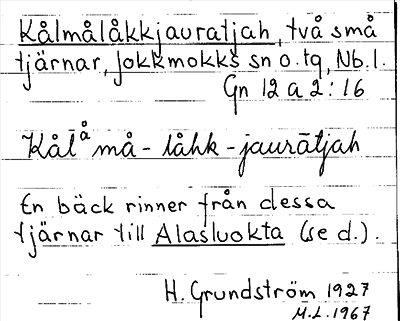 Kålmålåkkjauratjah, två små
tjärnar, Jokkmokks sn o. tg, Nb. l.
Gn 12 a 2:16
Kålåmå-låhk-jaurātjah
En bäck rinner från dessa
tjärnar till Alasluokta (se d.).
H. Grundström 1927
M.L. 1967